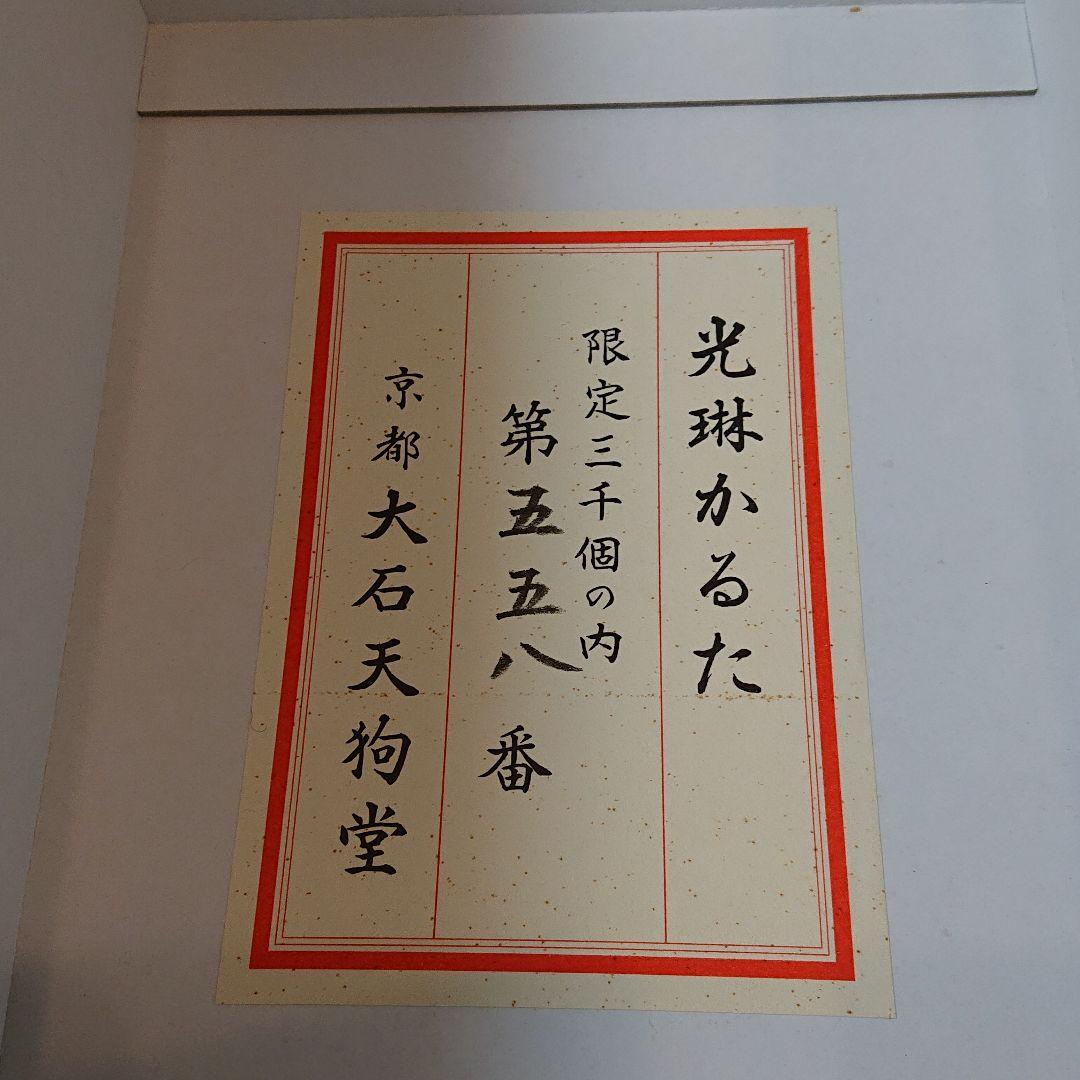 光琳かるた
限定三千個の内
第五五八番
京都大石天狗堂